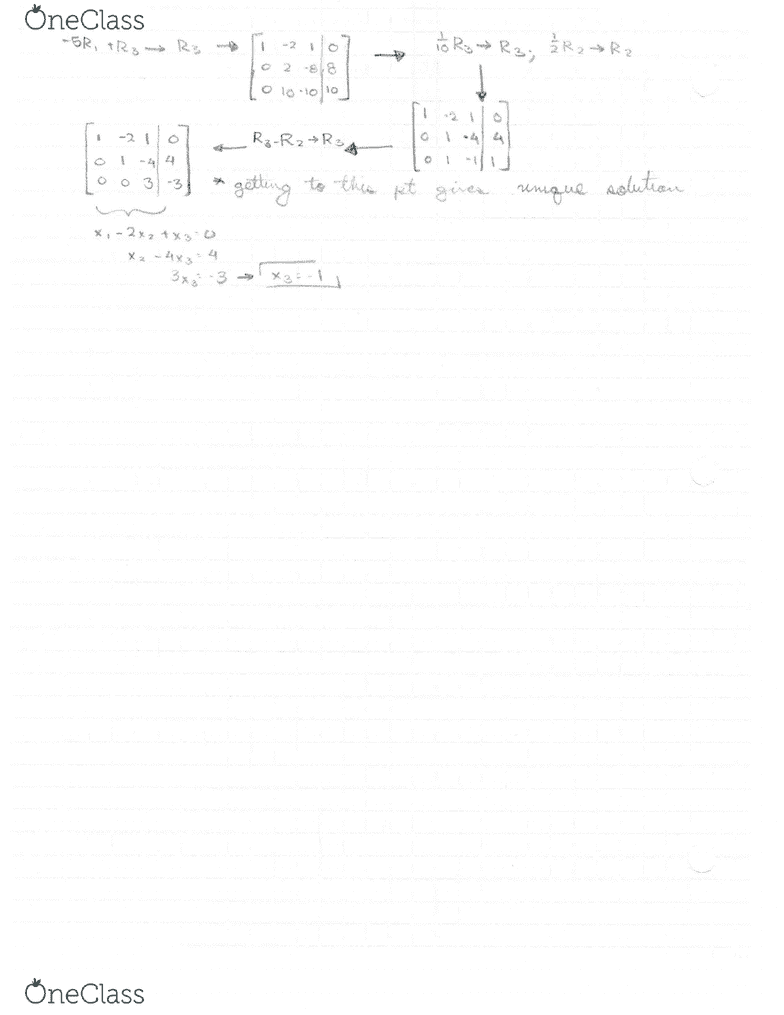 OneClass
-5R₁ + R₃ → R₃ → [1 -2 1 | 0] → 1/10 R₃ → R₃; 1/2 R₂ → R₂
[0 2 -8 | 8]
[0 10 -10 | 10]
[1 -2 1 | 0]
[0 1 -4 | 4]
[0 1 -1 | 1]
R₃ - R₂ → R₃
[1 -2 1 | 0]
[0 1 -4 | 4]
[0 0 3 | -3]
* getting to this pt gives unique solution
x₁ - 2x₂ + x₃ = 0
x₂ - 4x₃ = 4
3x₃ = -3 → x₃ = -1
OneClass